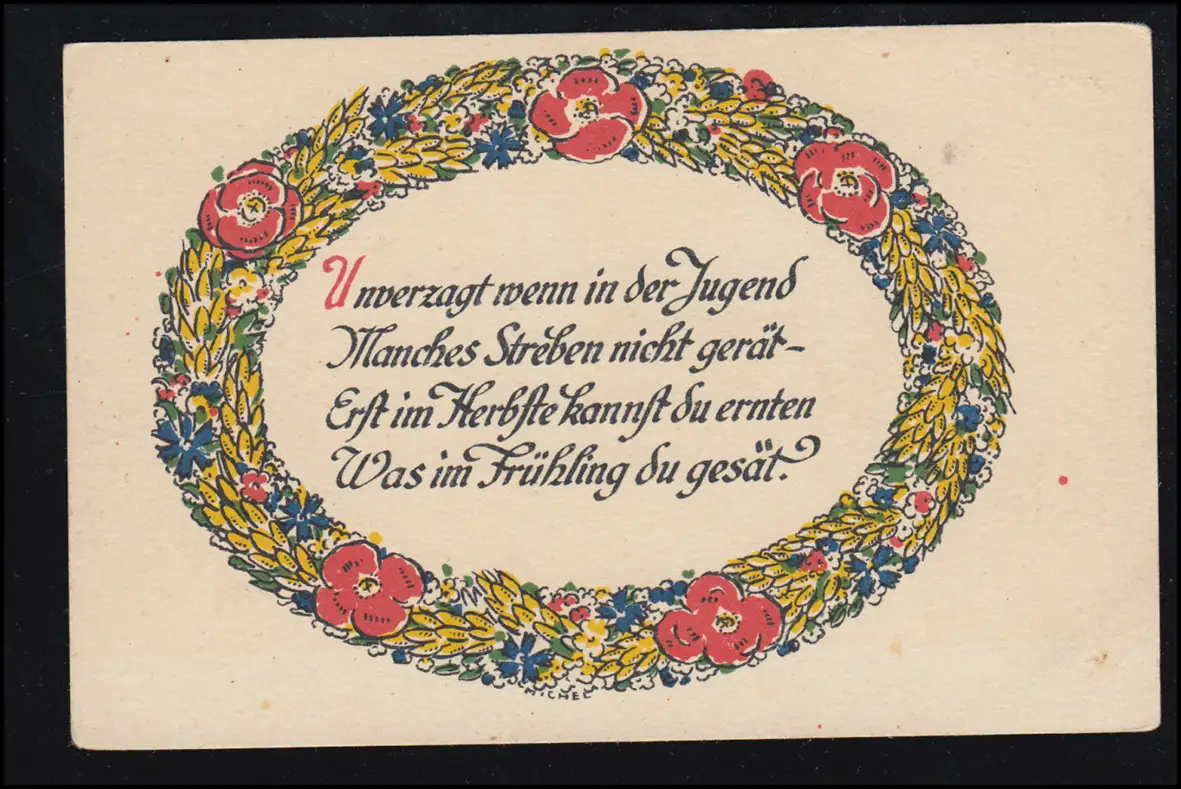 Unverzagt wenn in der Jugend
Manches Streben nicht gerät-
Erst im Herbste kannst du ernten
Was im Frühling du gesät.
MICHEL